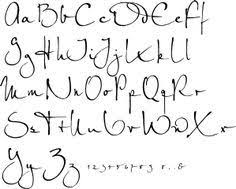 AaBbCcDdEeFf
GgHhIiJjKkLl
MmNnOoPpQqRr
SsTtUuVvWwXx
YyZz 123456789